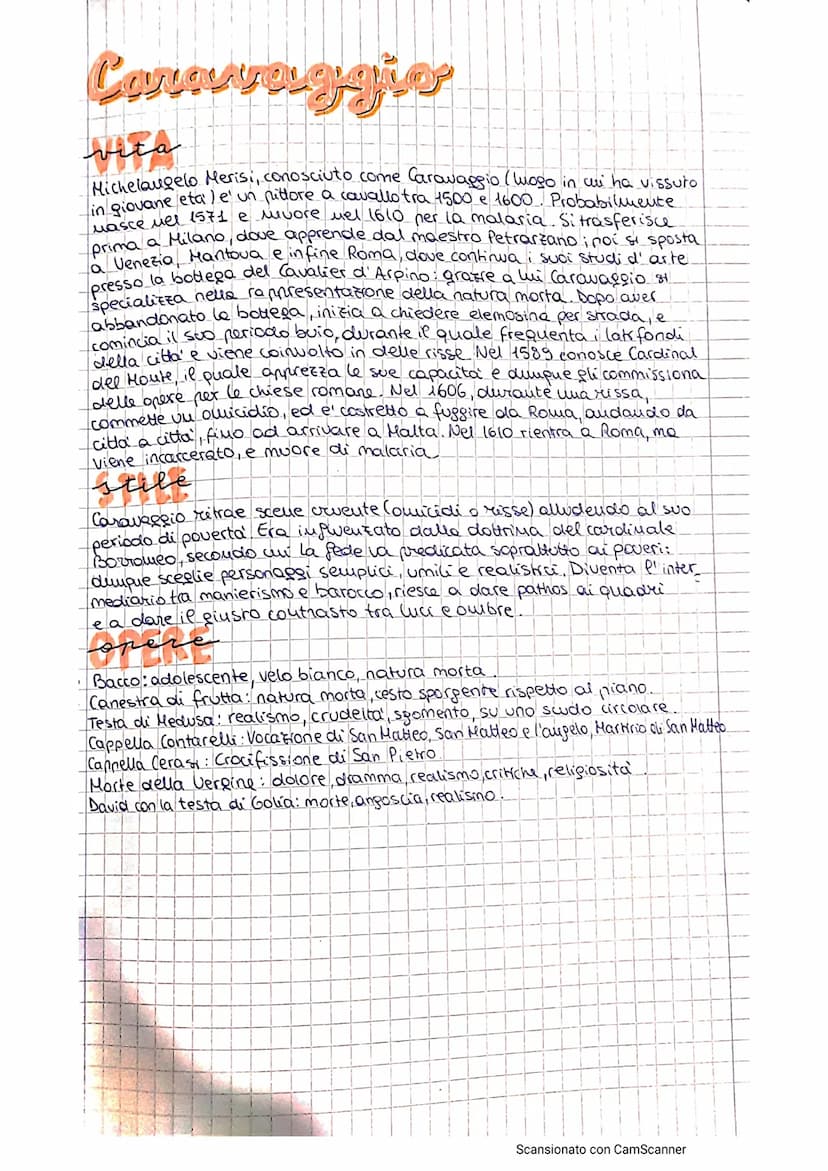 Caravaggio
vita
VITA
Michelangelo Merisi, conosciuto come Caravaggio (luogo in cui ha vissuto
in giovane età) e' un pittore a cavallo tra 1500 e 1600. Probabilmente
nasce nel 1571 e muore nel 1610 per la malaria. Si trasferisce
prima a Milano, dove apprende dal maestro Petrarzano; poi si sposta
a Venezia, Mantova e infine Roma, dove continua i suoi studi d'arte
presso la bottega del Cavalier d'Arpino: grazie a lui Caravaggio si
specializza nella rappresentazione della natura morta. Dopo aver
abbandonato la bottega, inizia a chiedere elemosina per strada, e
comincia il suo periodo buio, durante il quale frequenta i latifondi
della citta' e viene coinvolto in delle risse. Nel 1589 conosce Cardinal
del Monte, il quale apprezza le sue capacità e dunque gli commissiona
delle opere per le chiese romane. Nel 1606, durante una rissa,
commette un omicidio, ed e' costretto a fuggire da Roma, andando da
citta' a citta', fino ad arrivare a Malta. Nel 1610 rientra a Roma, ma
viene incarcerato, e muore di malaria
stile
STILE
Caravaggio ritrae scene cruente (omicidi o risse) alludendo al suo
periodo di poverta'. Era influenzato dalla dottrina del cardinale
Borromeo, secondo cui la fede va predicata soprattutto ai poveri:
dunque sceglie personaggi semplici, umili e realistici. Diventa l'inter_
mediario tra manierismo e barocco, riesce a dare pathos ai quadri
e a dare il giusto contrasto tra luci e ombre.
opere
OPERE
Bacco: adolescente, velo bianco, natura morta.
Canestra di frutta: natura morta, cesto sporgente rispetto al piano.
Testa di Medusa: realismo, crudelta', sgomento, su uno scudo circolare.
Cappella Contarelli: Vocazione di San Matteo, San Matteo e l'angelo, Martirio di San Matteo
Cappella Cerasi: Crocifissione di San Pietro
Morte della Vergine: dolore, dramma, realismo, critiche, religiosità.
David con la testa di Golia: morte, angoscia, realismo.
Scansionato con CamScanner